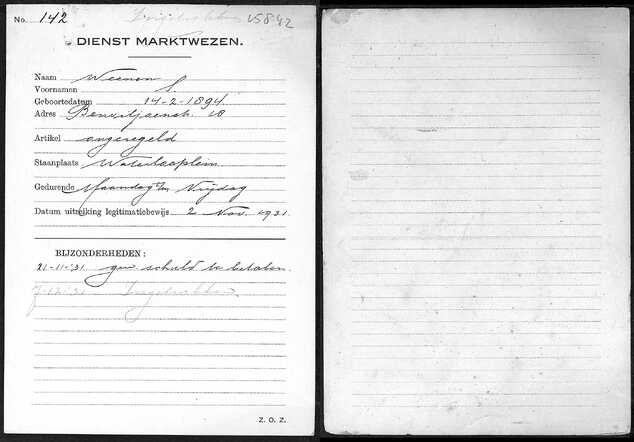 No. 142 Ingetrokken V5842
DIENST MARKTWEZEN.
Naam Weenen
Voornamen S.
Geboortedatum 14-2-1894.
Adres 10
Artikel ongeregeld
Staanplaats Waterlooplein
Gedurende Maandag t/m Vrijdag
Datum uitreiking legitimatiebewijs 2 Nov. 1931.
BIJZONDERHEDEN:
21-11-'31 gew. schuld te betalen.
7-12-'31 Ingetrokken.
Z. O. Z.